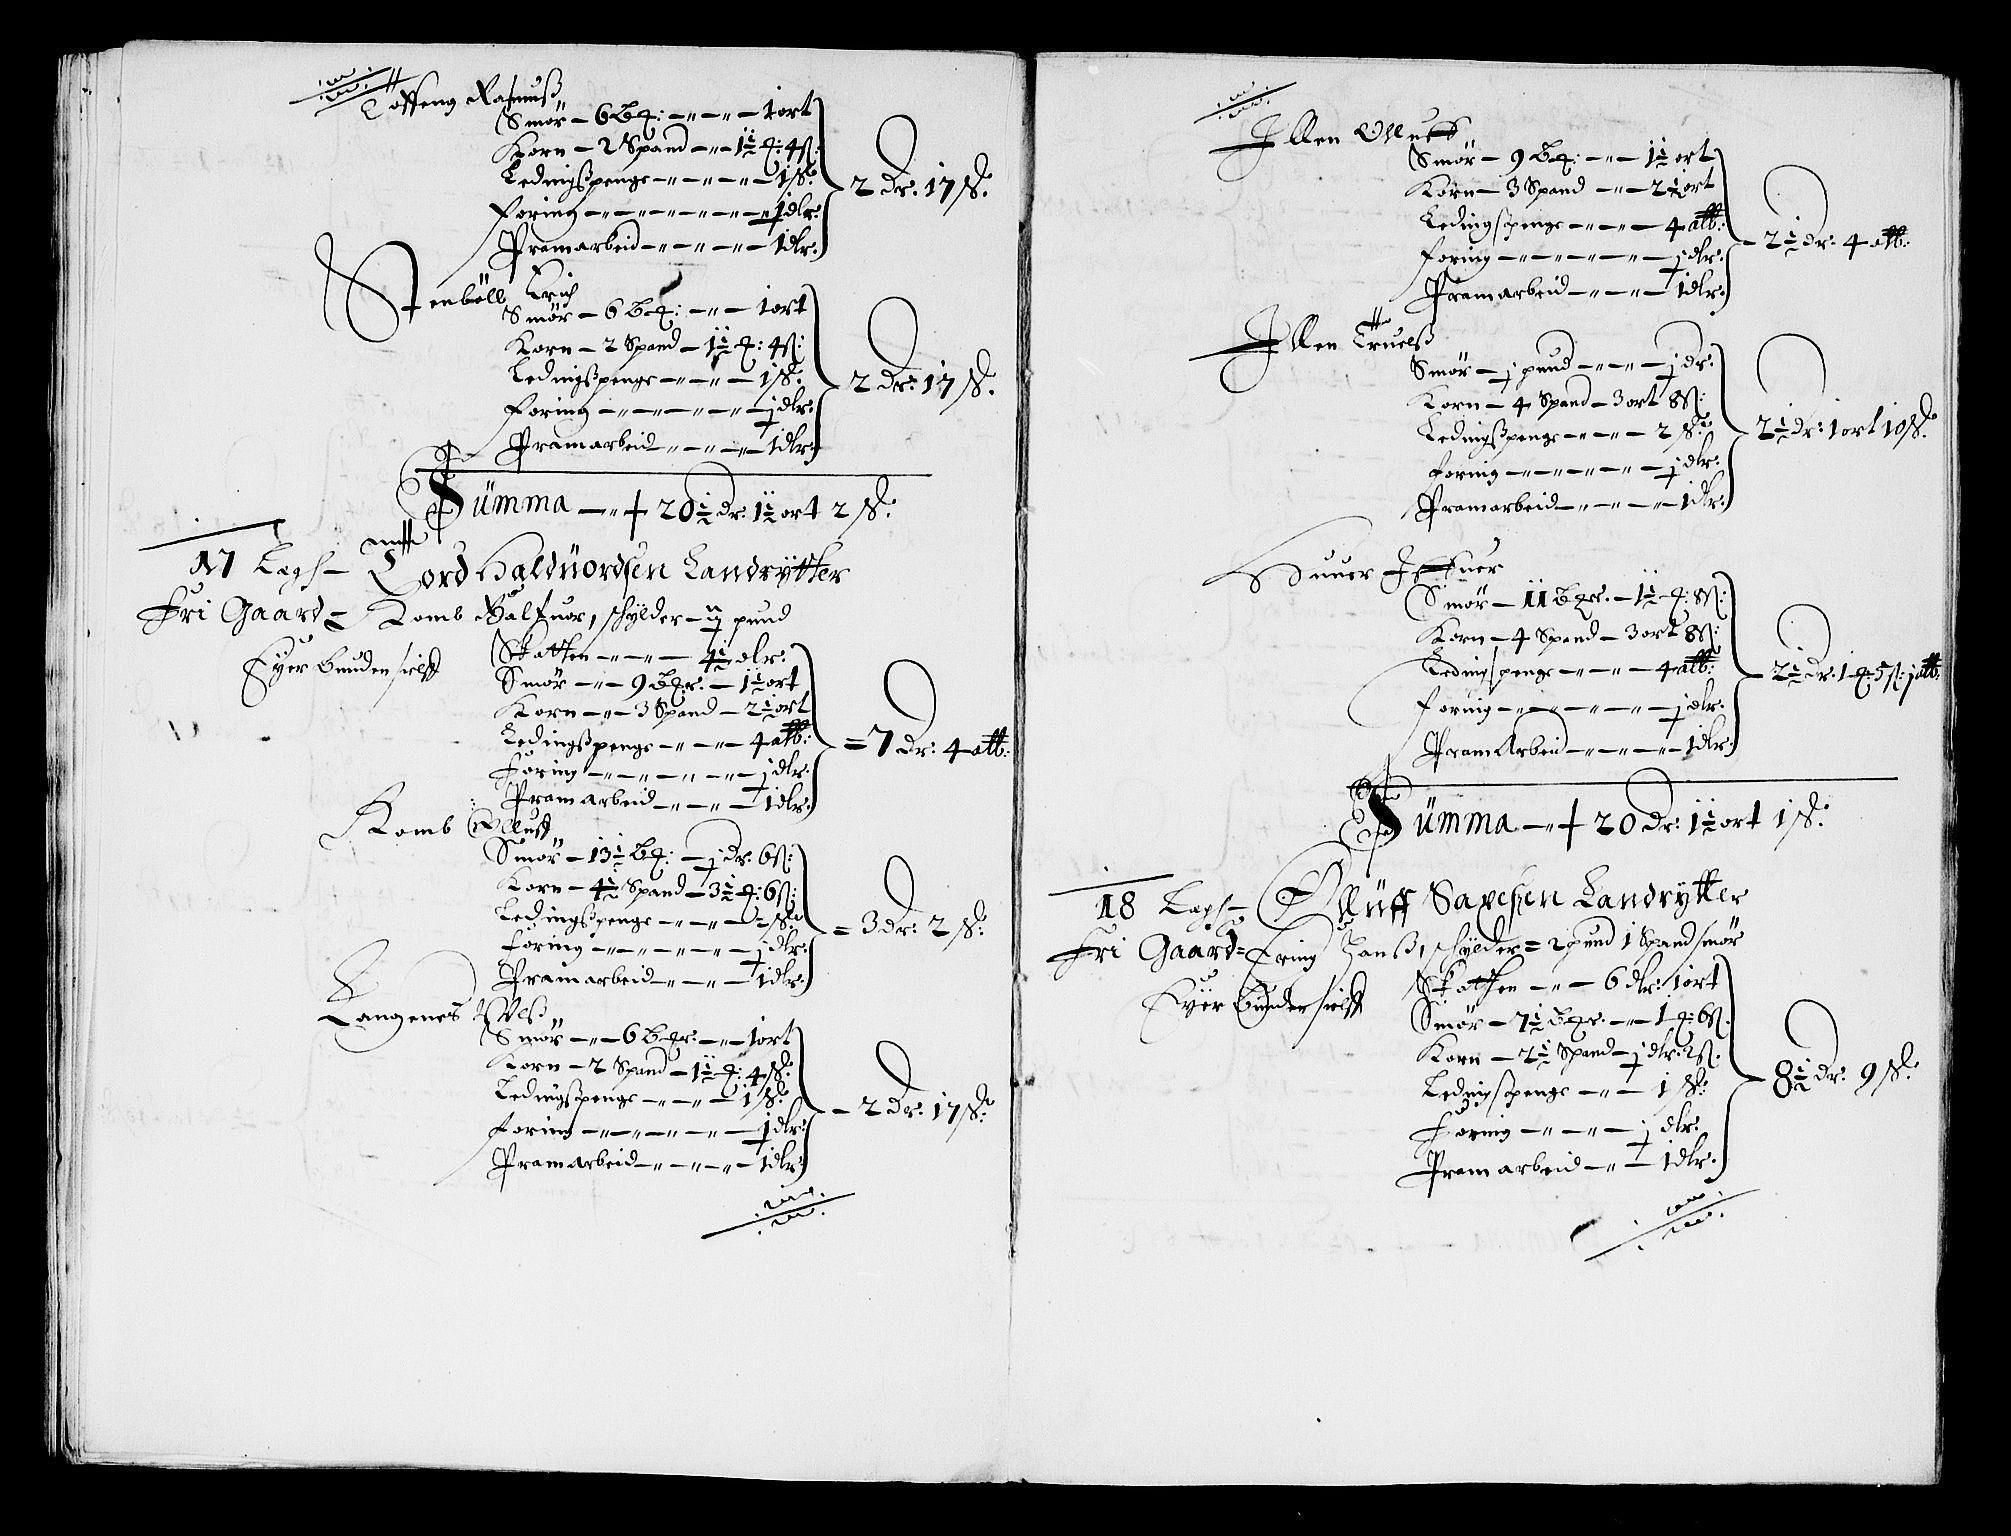 Toffeng Rasmuß
Smör – 6 B℔: – „ – „ – 1 ort
Korn – 2 Spand – „ – 1½ ℔: 4 ß:
Ledingßpenge – „ – „ – „ – 1 ß:
Foring – „ – „ – „ – „ – ½ dlr:
Pramarbeid – „ – „ – „ – 1 dlr:
2 dr: 17 ß:
Stenböll Erich
Smör – 6 B℔: – „ – 1 ort
Korn – 2 Spand – 1½ ℔: 4 ß:
Ledingßpenge – „ – „ – 1 ß:
Foring – „ – „ – „ – ½ dlr:
Pramarbeid – „ – „ – „ – 1 dlr:
2 dr: 17 ß:
Summa – „ – 20½ dr: 1½ ort 2 ß:
17 Legh – Tord Haldüordsen Landrÿtter
Fri Gaard = Komb Halfuor, schÿlder – 2 pund
Eÿer bunden sielff
Skatten – „ – „ – 4½ dlr:
Smör – „ – 9 B℔r: – 1½ ort
Korn – „ – 3 Spand – 2½ ort
Ledingßpenge – „ – „ – 4 alb:
Foring – „ – „ – „ – „ – ½ dlr:
Pramarbeid – „ – „ – 1 dlr:
= 7 dr: 4 alb:
Komb Olluff
Smör – 13½ B℔: – ½ dr: 6 ß:
Korn – 4½ Spand – 3½ ℔: 6 ß:
Ledingßpenge – „ – „ – „ – 2 ß:
Foring – „ – „ – „ – „ – ½ dlr:
Pramarbeid – „ – „ – 1 dlr:
= 3 dr: 2 ß:
Langenes
Smör – „ – 6 B℔r: – „ – 1 ort
Korn – 2 Spand – 1½ ℔: 4 ß:
Ledingßpenge – „ – „ – 1 ß:
Foring – „ – „ – „ – „ – ½ dlr:
Pramarbeid – „ – „ – „ – 1 dlr:
– 2 dr: 17 ß:
Illen Olluff
Smör – 9 B℔: – „ – 1½ ort
Korn – 3 Spand – „ – 2½ ort
Ledingßpenge – „ – „ – 4 alb:
Foring – „ – „ – „ – „ – ½ dlr:
Pramarbeid – „ – „ – 1 dlr:
– 2½ dr: 4 alb:
Illen Truelß
Smör – ½ pund – „ – „ – ½ dr:
Korn – 4 Spand – 3 ort 8 ß:
Ledingßpenge – „ – „ – 2 ß:
Foring – „ – „ – „ – „ – ½ dlr:
Pramarbeid – „ – „ – „ – 1 dlr:
2½ dr: 1 ort 10 ß:
Huuer Iffuer
Smör – 11 B℔r: – 1½ ℔: 8 ß:
Korn – 4 Spand – 3 ort 8 ß:
Ledingßpenge – „ – „ – 4 alb:
Foring – „ – „ – „ – „ – ½ dlr:
PramArbeid – „ – „ – „ – 1 dlr:
– 2½ dr: 1 ℔: 5 ß: j alb:
Summa – „ – 20 dr: 1½ ort 1 ß:
18 Legh – Ollüff Saxesen Landrytter
Fri Gaard = Hanß, schÿlder = 2 pund 1 Spand smör
Eÿer bunden sielff
Skatten – „ – 6 dlr: 1 ort
Smör – 7½ B℔r: – „ – 1 ℔: 6 ß:
Korn – 2½ Spand – ½ dlr: 2 ß:
Ledingßpenge – „ – „ – 1 ß:
Foring – „ – „ – „ – ½ dlr:
Pramarbeid – „ – 1 dlr:
8½ dr: 9 ß: